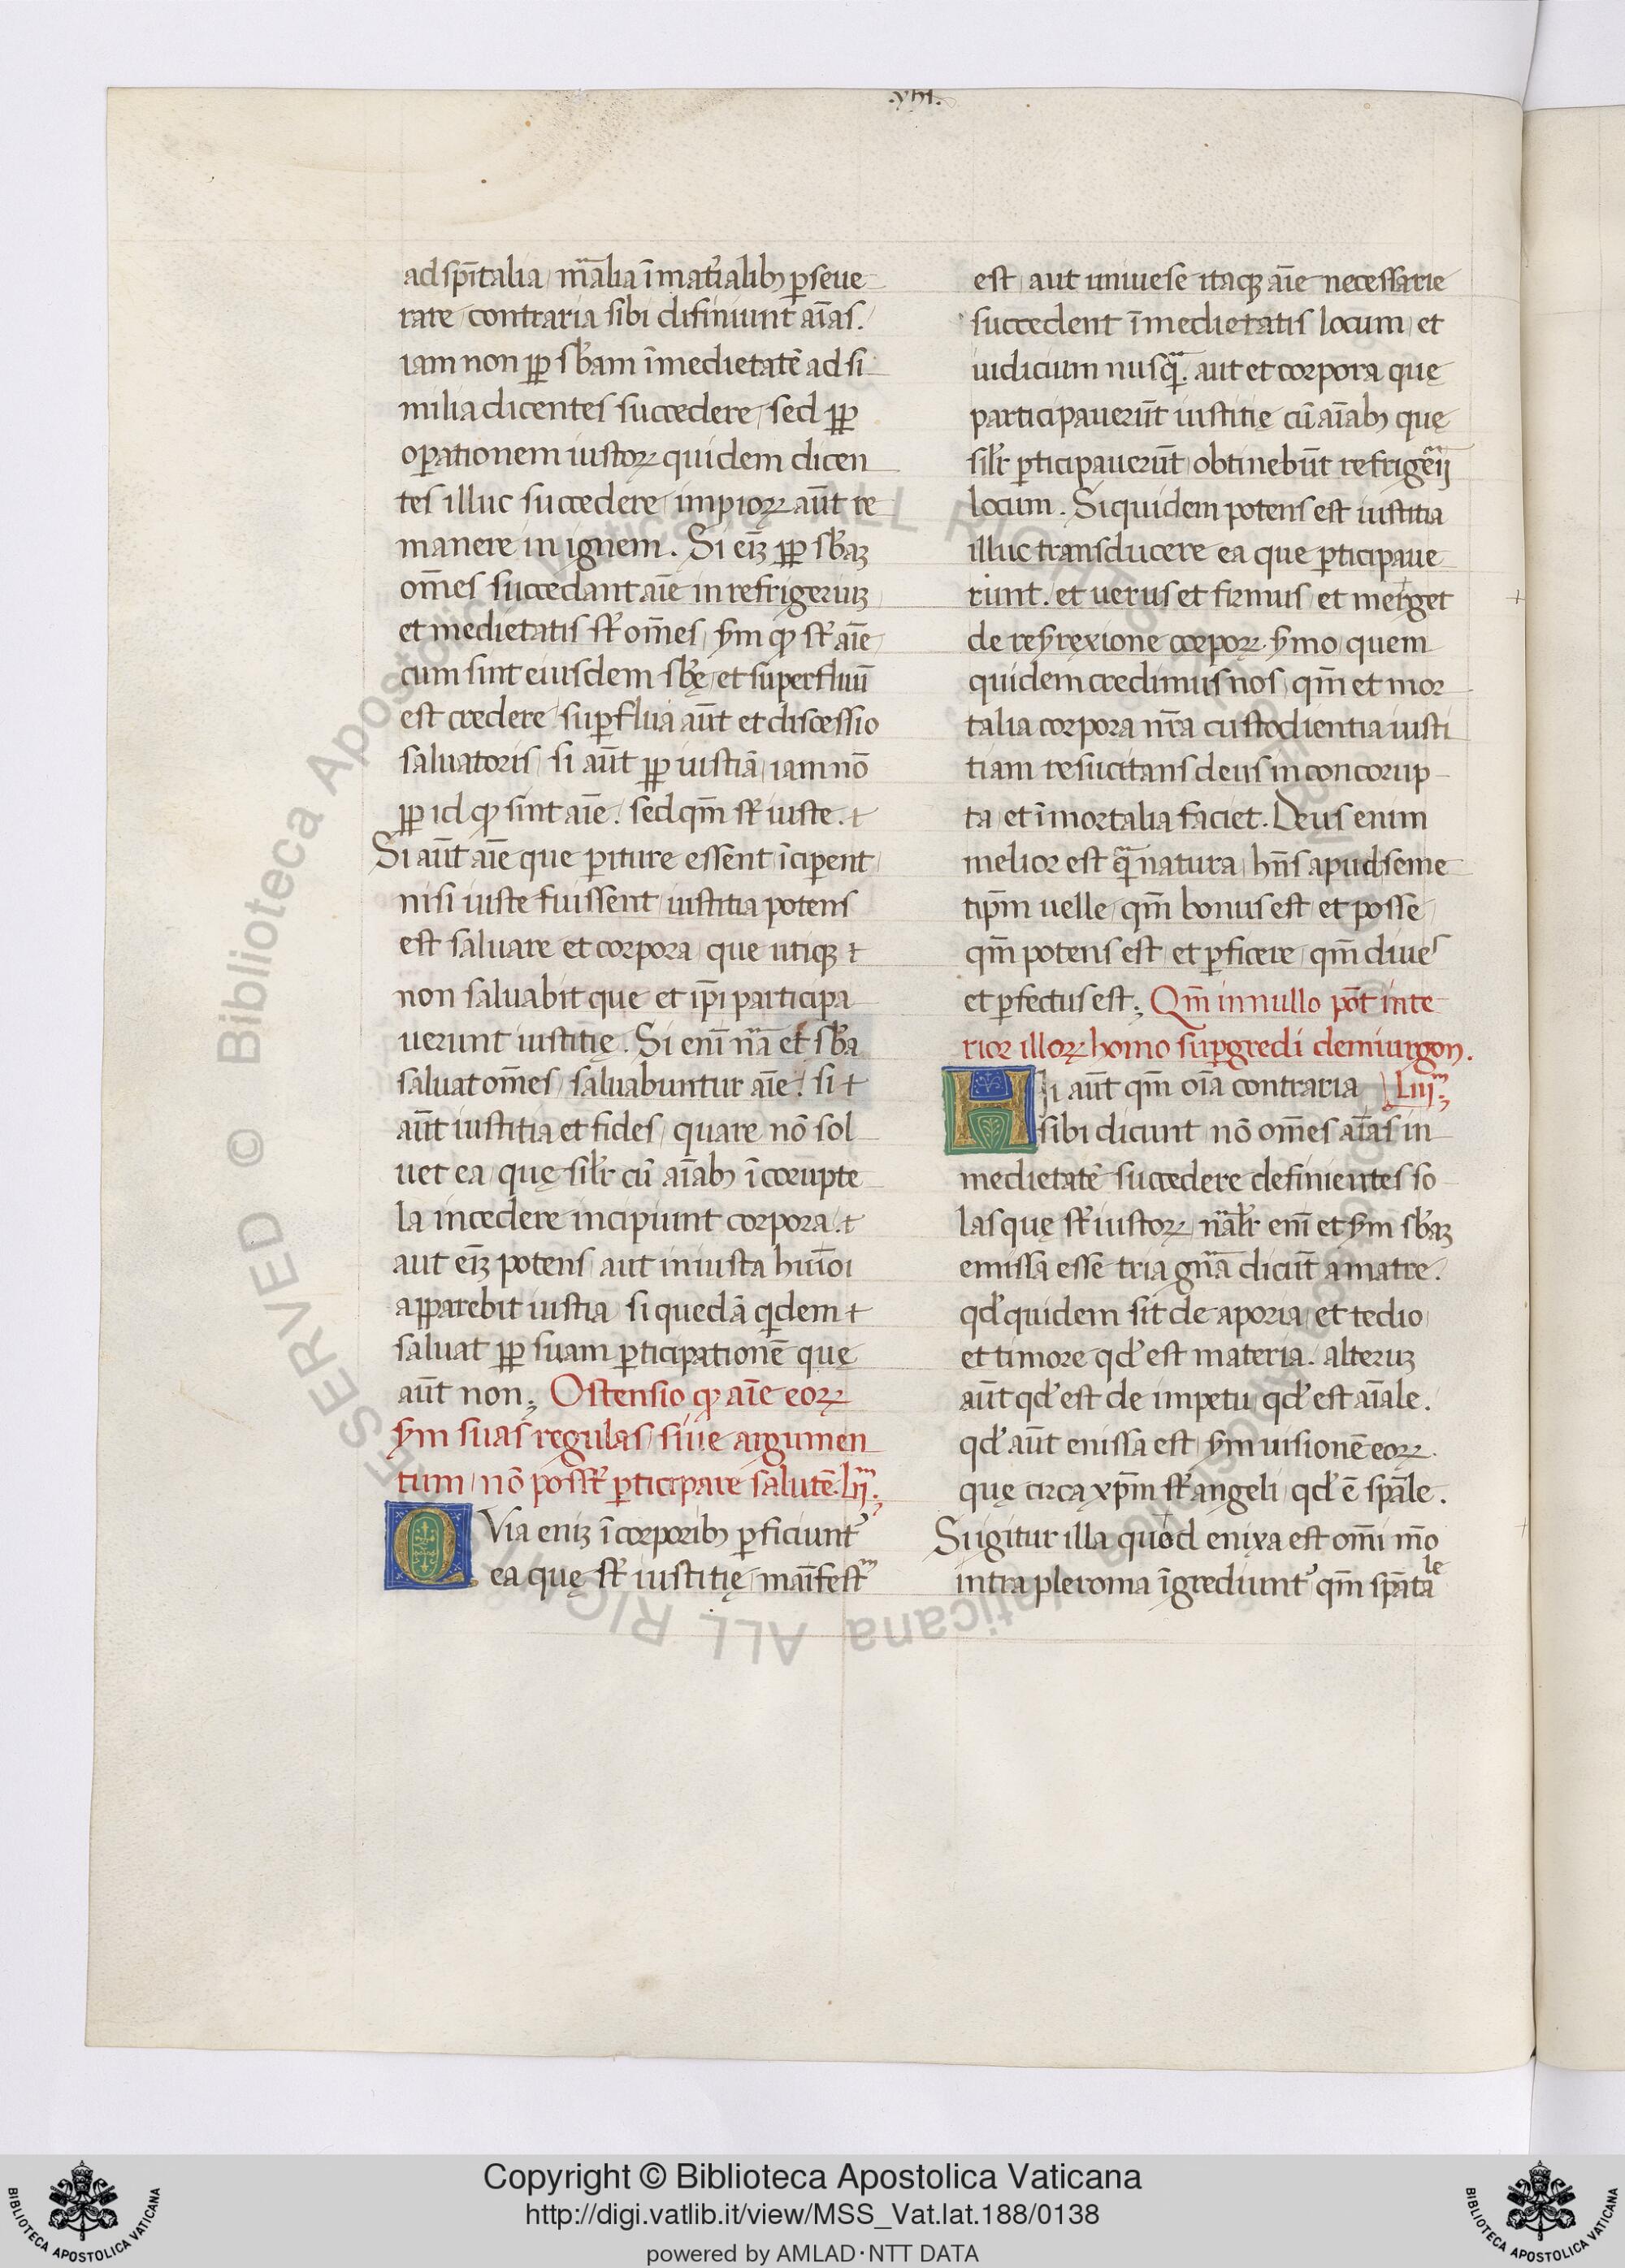 .viii.
ad sp̄italia, mᷓalia īmaťialib; ꝑseue
rare, contraria sibi difiniunt aīas.
iam non ꝓp sb̄am īmedietatē ad si
milia dicentes succedere, sed ꝓp
oꝑationem iustoꝝ quidem dicen
tes illuc succedere, impioꝝ aūt re
manere in ignem. Si eīꝫ ꝓp sb̄aꝫ
om̄es succedant aīe in refrigeriuꝫ
et medietatis sťomes, s̄m ꝙ sť aīe
cum sint eiusdem sb̄ę, et superfluū
est credere, suꝑflua aūt et discessio
saluatoris, si aūt ꝓp iustiā, iam nō
ꝓp id ꝙ sint aīe. sed qm̄ sť iuste. t
Si aūt aīe que ꝑiture essent īciꝑent
nisi iuste fuissent, iustitia potens
est saluare et corpora, que utiqꝫ t
non saluabit que et ip̄i participa
uerunt iustitię. Si enī nᷓa et sb̄a
saluat om̄es, saluabuntur aīe. si t
aūt iustitia et fides, quare nō sol
uet ea, quę sil̄r cū aīab; īcorupte
la incedere incipiunt corpora. t
aut eīꝫ potens, aut iniusta hui̅oi
apparebit iustia, si quedā qͥdem t
saluat ꝓp suam ꝑticipationē que
aūt non; Ostensio ꝙ aīe eoꝝ
s̄m suas regulas, siue argumen
tum, nō possť ꝑticipare salutē. Lijᵐ;
QVia eniꝫ īcorporib; ꝑficiunť
ea quę sť iustitię, manīfestᵐ
est, aut uniuese itaqꝫ aīe necessarie
succedent īmedietatis locum, et
iudicium nusqᷓ. aut et corpora que
participauerūt iustitię cū aīab; quę
sil̄r ꝑticipauerūt, obtinebūt refrigeᷓij
locum. Siquidem potens est iustitia
illuc transducere ea que ꝑticipaue
runt. et uerus et firmus, et merget
de resr̄rexione corpoꝝ. s̄mo, quem
quidem credimus nos, qm̄ et mor
talia corpora nr̄a custodientia iusti
tiam resucitans deus in concorup
ta, et īmortalia faciet. Deus enim
melior est qᷓ natura, hn̄s apud seme
tip̄m uelle, qm̄ bonus est, et posse,
qm̄ potens est, et ꝑficere, qm̄ diues
et ꝑfectus est; Qm̄ in nullo pōt inte
rior illoꝝ homo suꝑgredi demiurgon.
HIi aūt qm̄ oīa contraria Liijᵐ;
sibi dicunt nō om̄es aīas in
medietatē succedere definientes so
las quę sť iustoꝝ, nᷓal̄r enī et s̄m sb̄aꝫ
emissa esse tria gnᷓa dicūt a matre.
qđ quidem sit de aporia, et tedio,
et timore qđ est materia. alteruꝫ
aūt qđ est de impetu, qđ est aīale.
qđ aūt enissa est, s̄m uisionē eoꝝ
quę circa xp̄m sť angeli, qđ ē spāle.
Si igitur illa quod enixa est om̄i m̄o
intra pleroma īgrediunť qm̄ sp̄ataˡᵉ
Copyright © Biblioteca Apostolica Vaticana
http://digi.vatlib.it/view/MSS_Vat.lat.188/0138
powered by AMLAD·NTT DATA
BIBLIOTECA APOSTOLICA VATICANA
BIBLIOTECA APOSTOLICA VATICANA